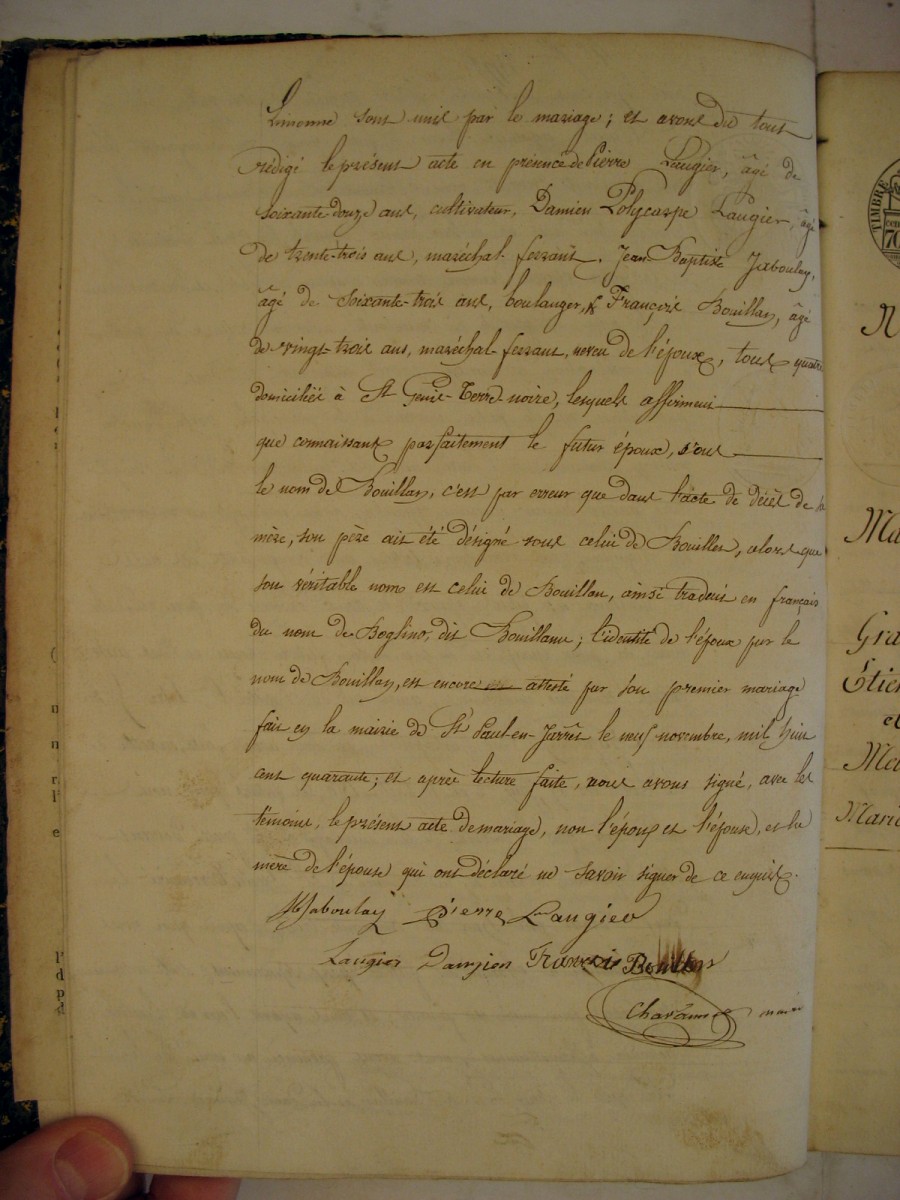 Limonne sont unis par le mariage; et avons du tout
rédigé le présent acte en présence de Pierre Laugier, âgé de
soixante-douze ans, cultivateur, Damien Polycarpe Laugier, âgé
de trente-trois ans, maréchal-ferrant, Jean-Baptiste Jaboulay,
âgé de soixante-trois ans, boulanger, & François Bouillan, âgé
de vingt-trois ans, maréchal-ferrant, neveu de l'époux, tous quatre
domiciliés à St Genis-Terre-noire, lesquels affirment
que connaissant parfaitement le futur époux, sous
le nom de Bouillan, c'est par erreur que dans l'acte de décès de sa
mère, son père ait été désigné sous celui de Bouillet, alors que
son véritable nom est celui de Bouillan, ainsi traduit en français
du nom de Boglino, dit Bouillanne; l'identité de l'époux par le
nom de Bouillan, est encore attesté par son premier mariage
fait en la mairie de St Paul-en-Jarrêt le neuf novembre, mil huit
cent quarante; et après lecture faite, nous avons signé, avec les
témoins, le présent acte de mariage, non l'époux et l'épouse, et la
mère de l'épouse qui ont déclaré ne savoir signer de ce enquis.
Jaboulay Pierre Laugier
Laugier Damien François
maire
TIMBRE
70
Ma
Gra
Étie
e
Ma
Marie